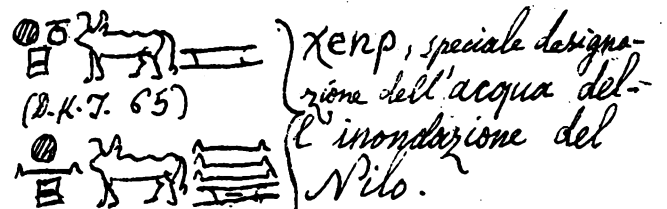 χenp, speciale designa-
(D.K.I. 65)
zione dell'acqua del-
l'inondazione del
Nilo.